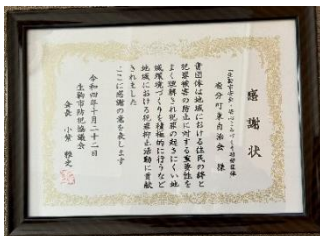 感謝状
生駒市安全・安心まちづくり対策団体
有分町東自治会 様
貴団体は地域における住民の絆と
犯罪被害の防止に対する重要性を
よく理解され犯罪の起きにくい地
域環境づくりを積極的に行うなど
地域における犯罪抑止活動に貢献
されました
ここに感謝の意を表します
令和四年十月二十二日
生駒市防犯協議会
会長 小紫 雅史